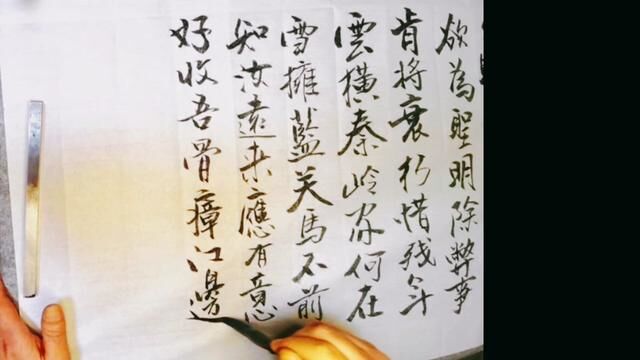 欲為聖明除弊事
肯將衰朽惜残年
雲橫秦岭家何在
雪擁藍关馬不前
知汝遠来應有意
好收吾骨瘴江邊